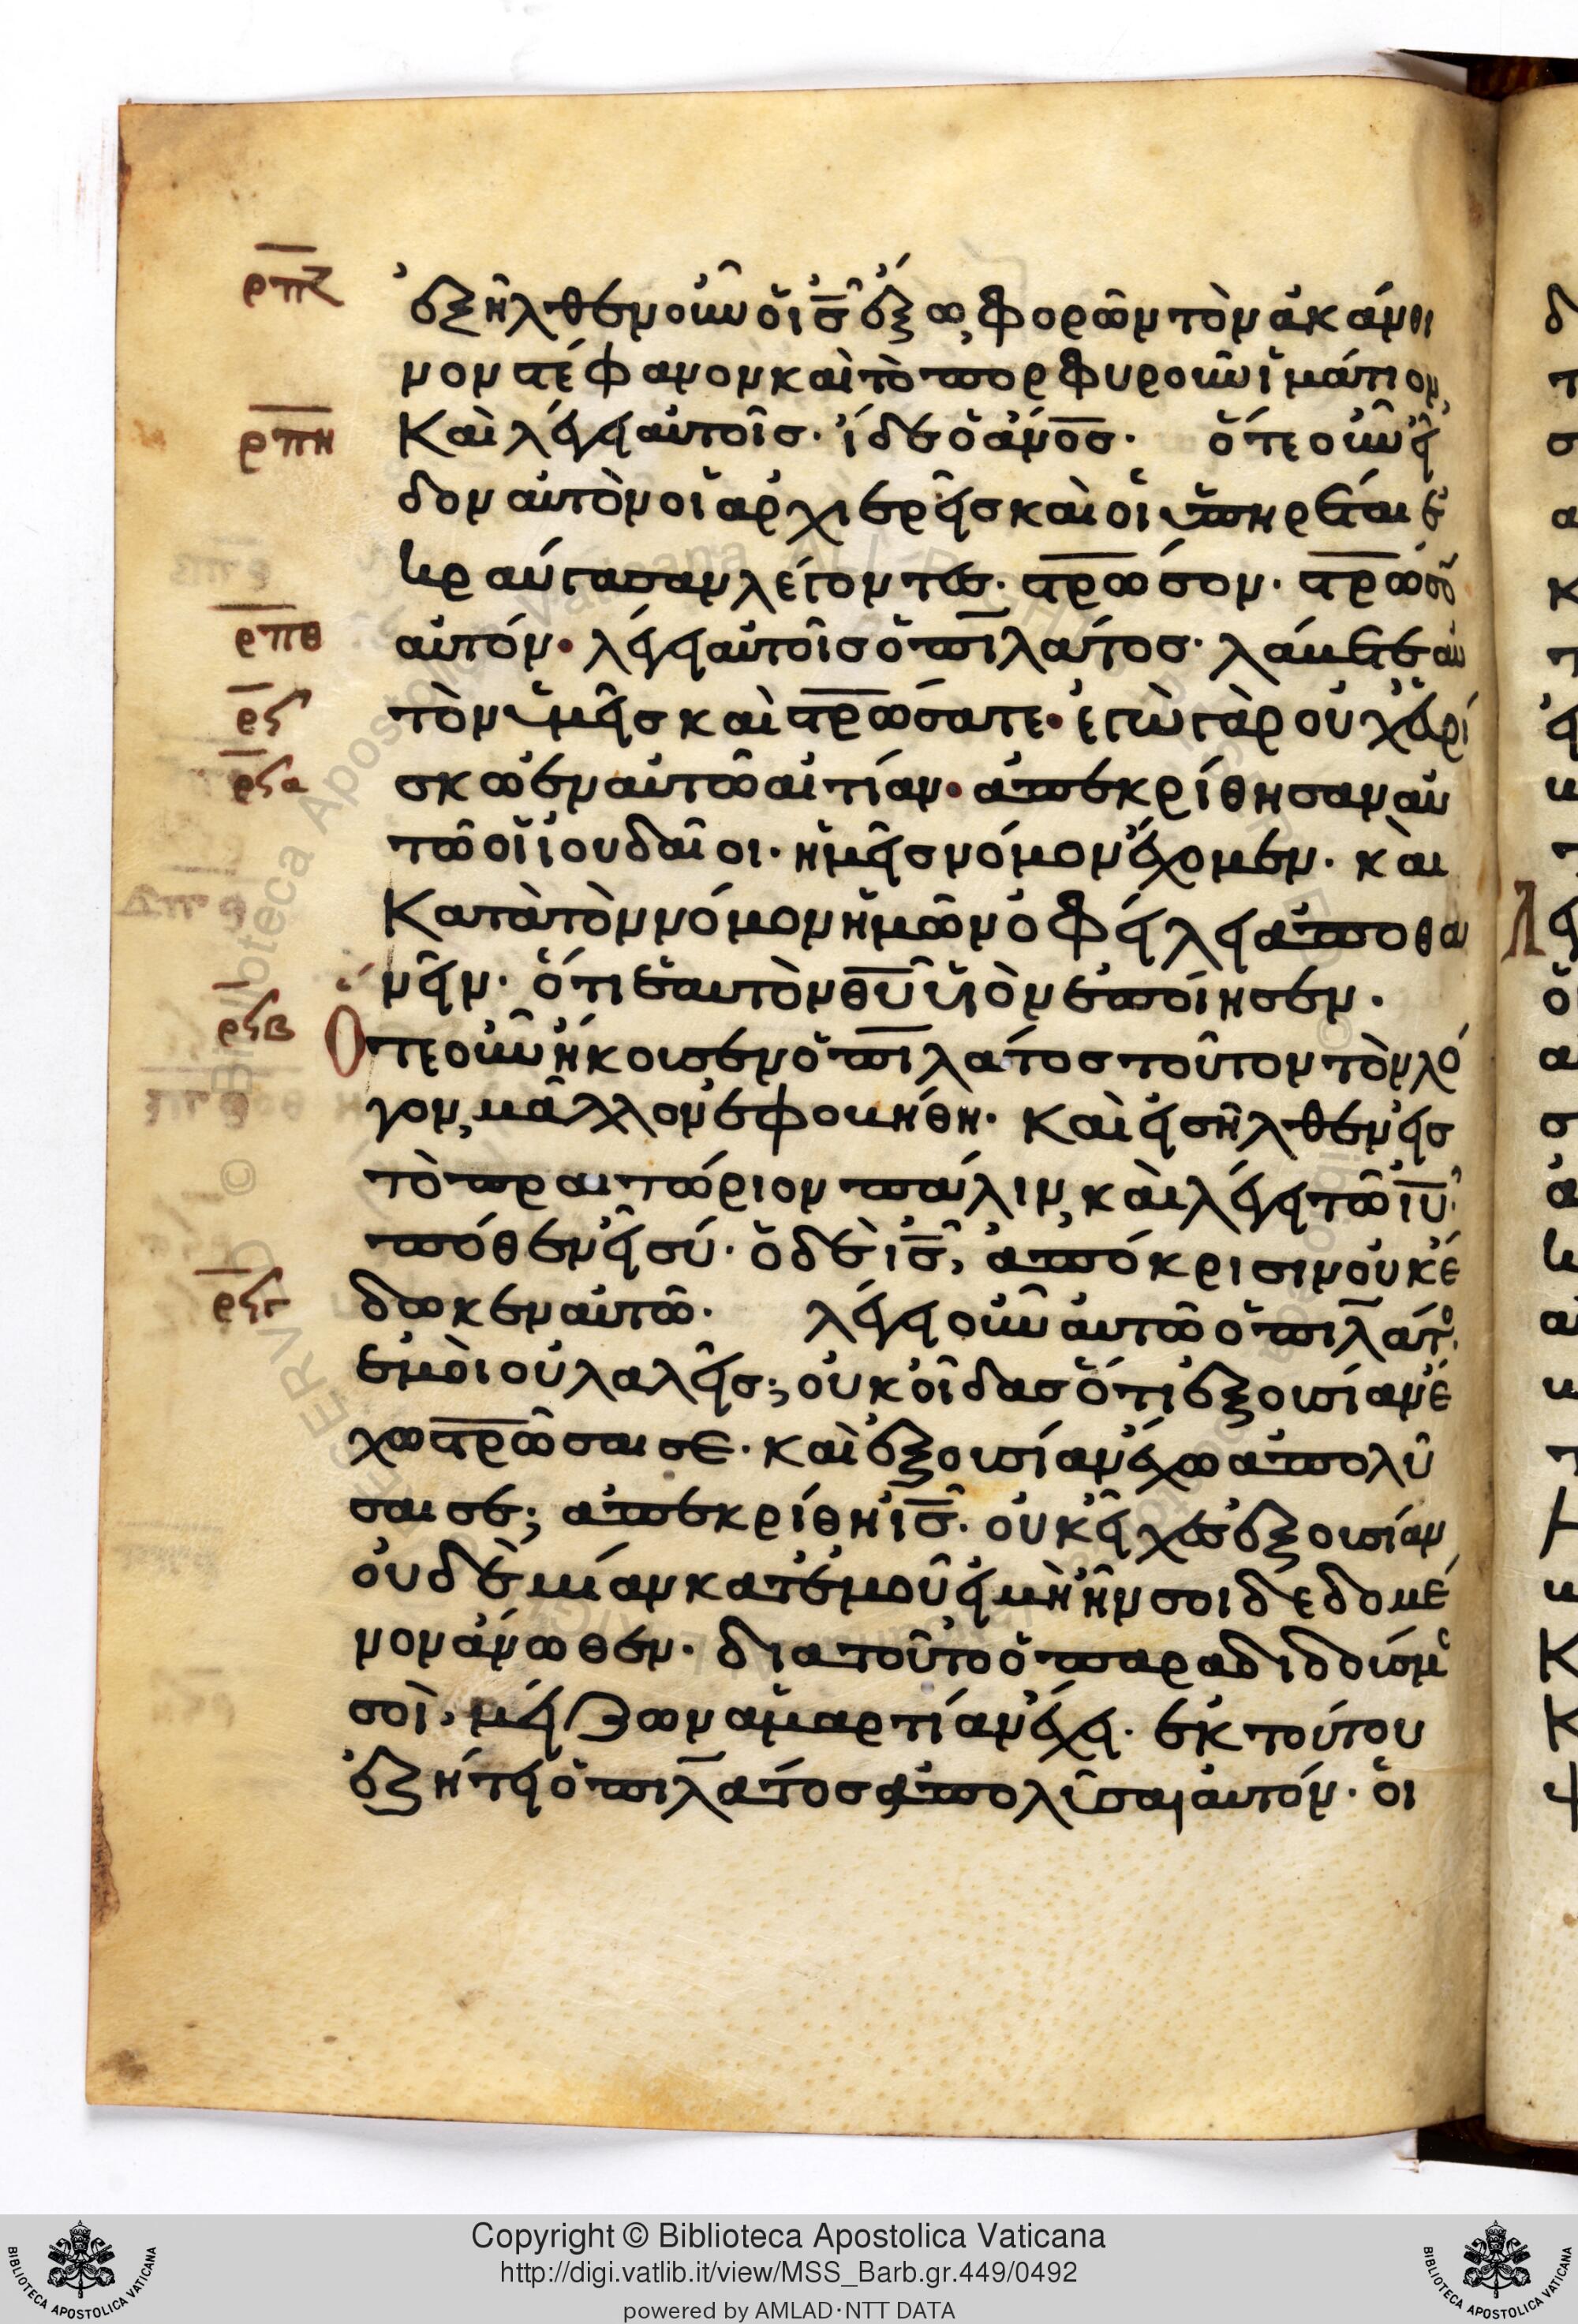 ρπζ
ἐξῆλθεν οὖν ὁ ις ἔξω, φορῶν τὸν ἀκάνθι
νον στέφανον καὶ τὸ πορφυροῦν ἱμάτιον,
ρπη
Καὶ λέγει αὐτοῖς· ἴδε ὁ ανος· ὅτε οὖν εἶ
δον αὐτὸν οἱ ἀρχιερεῖς καὶ οἱ ὑπηρέται ἐ
κραύγασαν λέγοντες· στρωσον· στρωσον
ρπθ
αὐτόν· λέγει αὐτοῖς ὁ πιλάτος· λάβετε αὐ
ρϟ
τὸν ὑμεῖς καὶ στρώσατε· ἐγὼ γὰρ οὐχ εὑρί
ρϟα
σκω ἐν αὐτῶ αἰτίαν· ἀπεκρίθησαν αὐ
τῶ οἱ ἰουδαῖοι· ἡμεῖς νόμον ἔχομεν· καὶ
Κατὰ τὸν νόμον ἡμῶν ὀφείλει ἀποθα
νεῖν· ὅτι ἑαυτὸν θυ υἱὸν ἐποίησεν·
ρϟβ
Ὅτε οὖν ἤκουσεν ὁ πιλάτος τοῦτον τὸν λό
γον, μᾶλλον ἐφοβήθη· Καὶ εἰσῆλθεν εἰς
τὸ πραιτώριον πάλιν, καὶ λέγει τῶ ιυ·
πόθεν εἶ σύ· ὁ δὲ ις, ἀπόκρισιν οὐκ ἔ
ρϟγ
δωκεν αὐτῶ· λέγει οὖν αὐτῶ ὁ πιλάτος·
ἐμοὶ οὐ λαλεῖς; οὐκ οἶδας ὅτι ἐξουσίαν ἔ
χω στρωσαι σε· καὶ ἐξουσίαν ἔχω ἀπολῦ
σαι σε; ἀπεκρίθη ις· οὐκ εἶχες ἐξουσίαν
οὐδεμίαν κατ' ἐμοῦ εἰ μὴ ἦν σοι δεδομέ
νον ἄνωθεν· διατοῦτο ὁ παραδιδούς με
σοὶ, μείζων ἁμαρτίαν ἔχει· ἐκ τούτου
ἐζήτει ὁ πιλάτος ἀπολῦσαι αὐτόν· οἱ
Copyright © Biblioteca Apostolica Vaticana
http://digi.vatlib.it/view/MSS_Barb.gr.449/0492
powered by AMLAD·NTT DATA
BIBLIOTECA APOSTOLICA VATICANA
BIBLIOTECA APOSTOLICA VATICANA